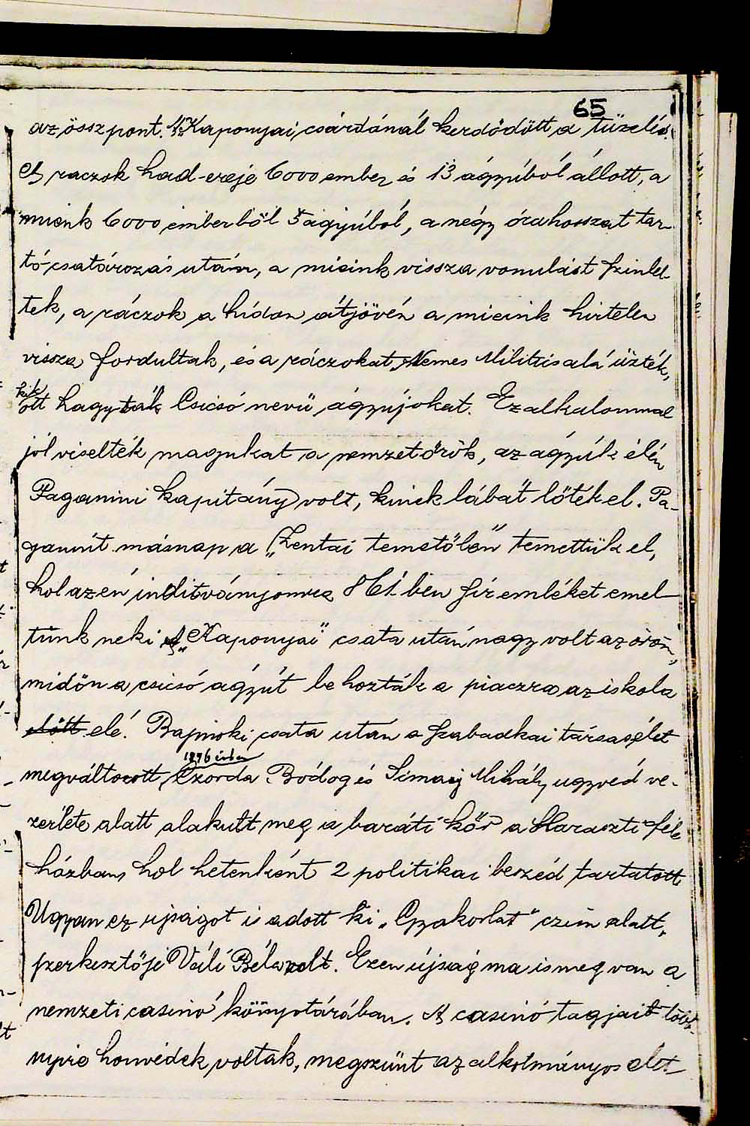 65
az összpont. Kaponyai csárdánál kezdődött a tüzelés.
A raczok had-ereje 6000 ember és 13 ágyúból állott, a
mienk 6000 emberből 5 ágyúból, a négy órahosszat tar-
tó csatározásután, a mieink vissza vonulást szinlel-
tek, a ráczok a hídon átjövén a mieink hirtelen
vissza fordultak, és a ráczokat Nemes Militis alá űzték,
kik ott hagyták Csicsó nevü ágyújokat. Ez alkalommal
jól viselték magukat a nemzetőrök, az ágyúk élén
Paganini kapitány volt, kinek lábát lőték el. Pa-
ganinit másnap a „Zentai temetőben" temettük el,
hol az én inditványomra 861 ben sír emléket emel-
tünk neki „Kaponyai" csata után nagy volt az öröm,
midőn a csicsó ágyút be hozták a piaczra az iskola
előtt elé. Bajmoki csata után a szabadkai társasélet
megváltozott, 1876 évben Czorda Bódog és Simaij Mihály ugyved ve-
zerlete alatt alakult meg a baráti kör a Haraszti féle
házban, hol hetenként 2 politikai beszéd tartatott
Ugyan ez ujságot is adott ki „Gyakorlat" czim alatt,
szerkesztője Váli Béla volt. Ezen újság ma is meg van a
nemzeti casinó könyvtárában. A casinó tagjait több-
nyire honvédek voltak, megszünt az alkotmányos élet